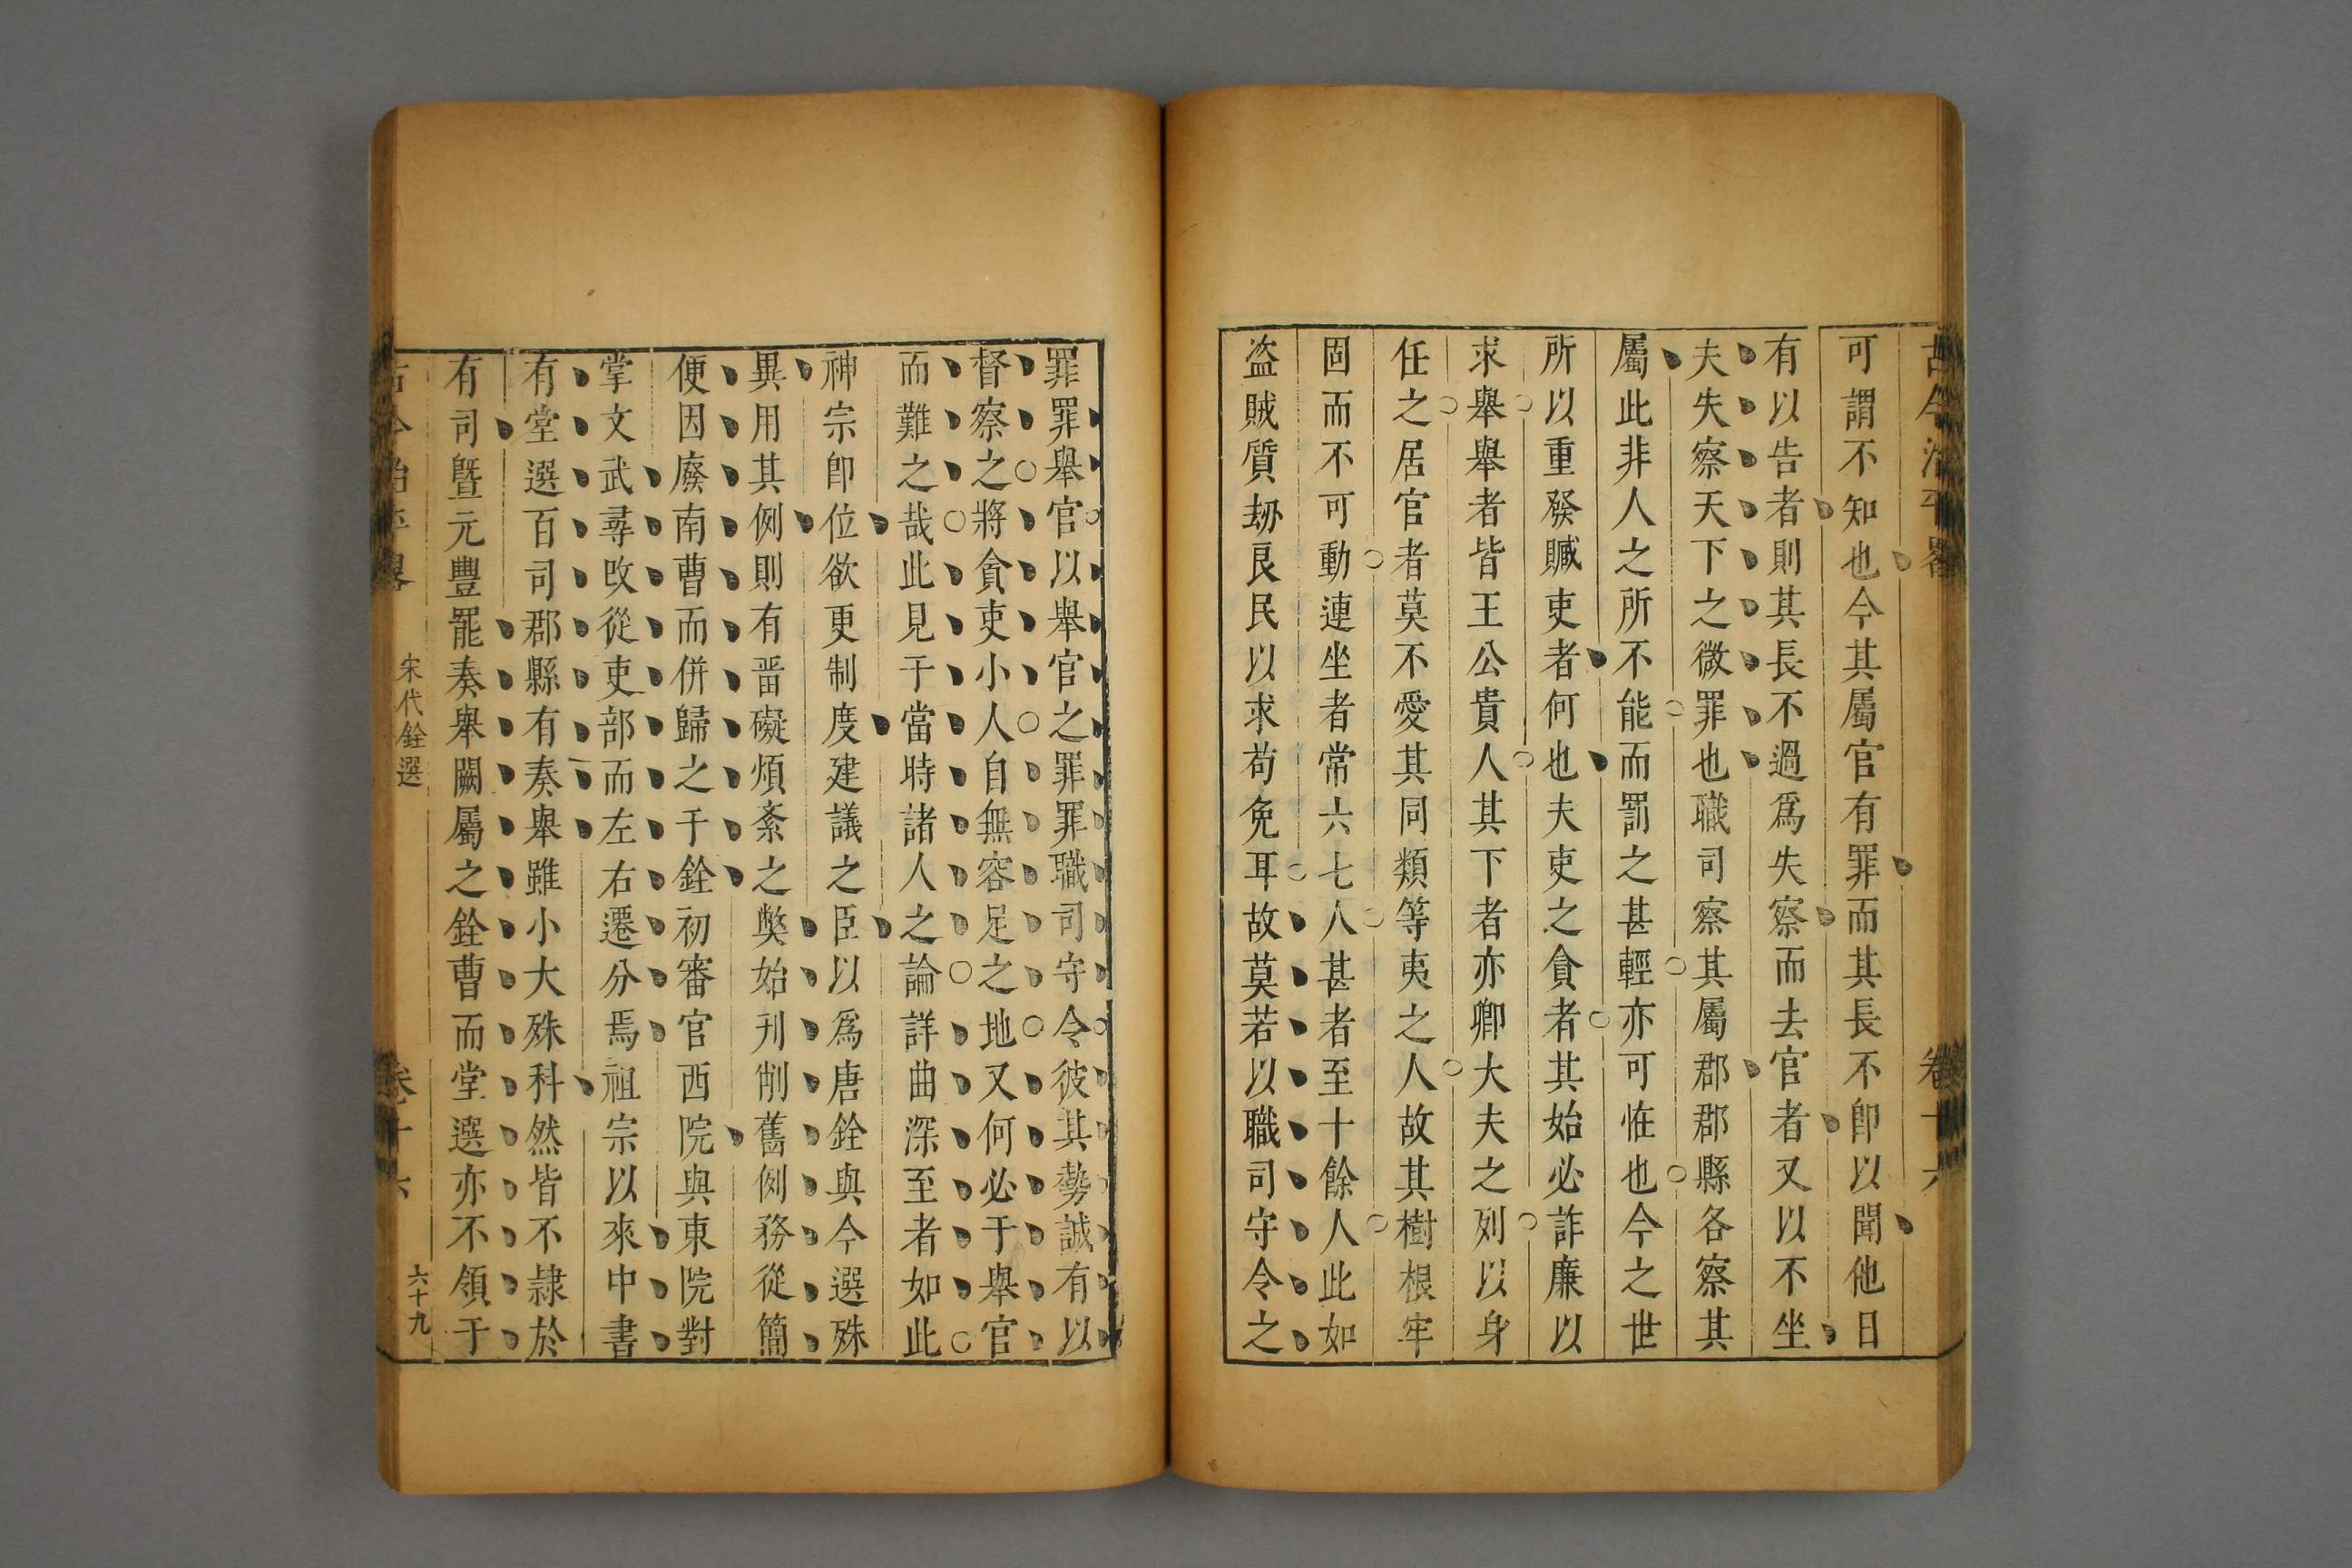 古今治平畧 卷十六
可謂不知也今其屬官有罪而其長不卽以聞他日
有以告者則其長不過爲失察而去官者又以不坐
夫失察天下之微罪也職司察其屬郡郡縣各察其
屬此非人之所不能而罰之甚輕亦可恠也今之世
所以重發贓吏者何也夫吏之貪者其始必詐廉以
求舉舉者皆王公貴人其下者亦卿大夫之列以身
任之居官者莫不愛其同類等夷之人故其樹根牢
固而不可動連坐者常六七人甚者至十餘人此如
盜賊質刼良民以求苟免耳故莫若以職司守令之
罪罪舉官以舉官之罪罪職司守令彼其勢誠有以
督察之將貪吏小人自無容足之地又何必于舉官
而難之哉此見于當時諸人之論詳曲深至者如此
神宗卽位欲更制度建議之臣以爲唐銓與今選殊
異用其例則有畱礙煩紊之獘始刋削舊例務從簡
便因廢南曹而併歸之于銓初審官西院與東院對
掌文武尋改從吏部而左右遷分焉祖宗以來中書
有堂選百司郡縣有奏舉雖小大殊科然皆不隷於
有司曁元豐罷奏舉闕屬之銓曹而堂選亦不領于
古今治平畧 宋代銓選 卷十六 六十九